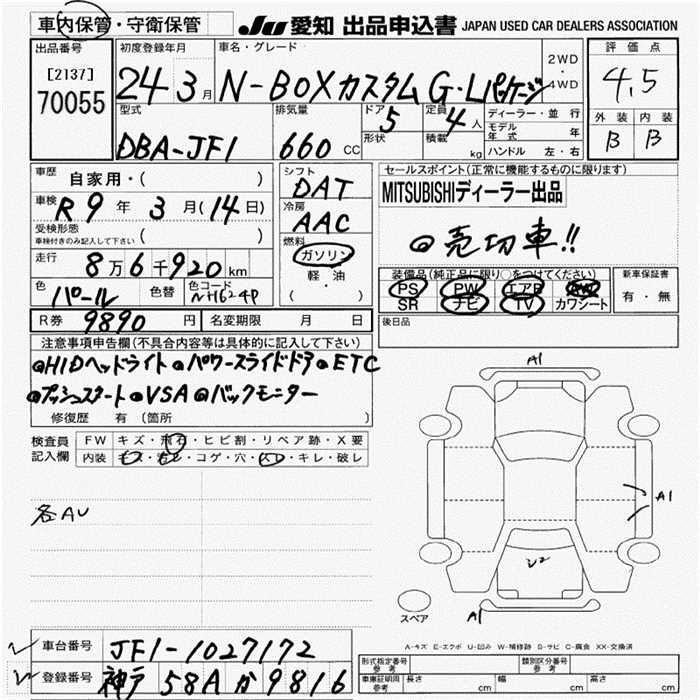 車内保管・守衛保管
JU 愛知 出品申込書 JAPAN USED CAR DEALERS ASSOCIATION
出品番号 初度登録年月 車名・グレード 2WD・4WD 評価点
[2137] 70055
24 3月 N-BOXカスタム G・Lパッケージ 4.5
型式 排気量 ドア 定員 ディーラー・並行 外装 内装
DBA-JF1 660 CC 5 4人 モデル年式 年 B B
形状 積載 kg ハンドル 左・右
車歴 自家用・( ) シフト DAT セールスポイント(正常に機能するものに限ります)
MITSUBISHIディーラー出品
車検 R9年 3月(14日) 冷房 AAC
受検形態 車検付きのみ記入して下さい ( )
◎売切車!!
燃料 ガソリン 軽・油 ( )
走行 8万6千920km
装備品(純正品に限り○をつけてください) 新車保証書
色 パール 色替 色コード NH624P
PS PW エアB
SR ナビ TV カワシート 有・無
R券 9890円 名変期限 月 日 後日品
注意事項申告欄(不具合内容等は具体的に記入して下さい)
◎HIDヘッドライト◎パワースライドドア◎ETC
◎プッシュスタート◎VSA◎バックモニター
修復歴 有 (箇所
検査員記入欄 FW キズ・飛石・ヒビ割・リペア跡・X要
内装 キズ・汚レ・コゲ・穴・スレ・キレ・破レ
A1
各AU
A1
A1
スペア
A-キズ E-エクボ U-凹み W-補修跡 S-サビ C-腐食 XX-交換済
車台番号 JF1-1027172
登録番号 神戸 58A か 9816
形式指定番号 参考 類別区分番号 参考
車庫証明用 参考 長さ cm 幅 cm 高さ cm